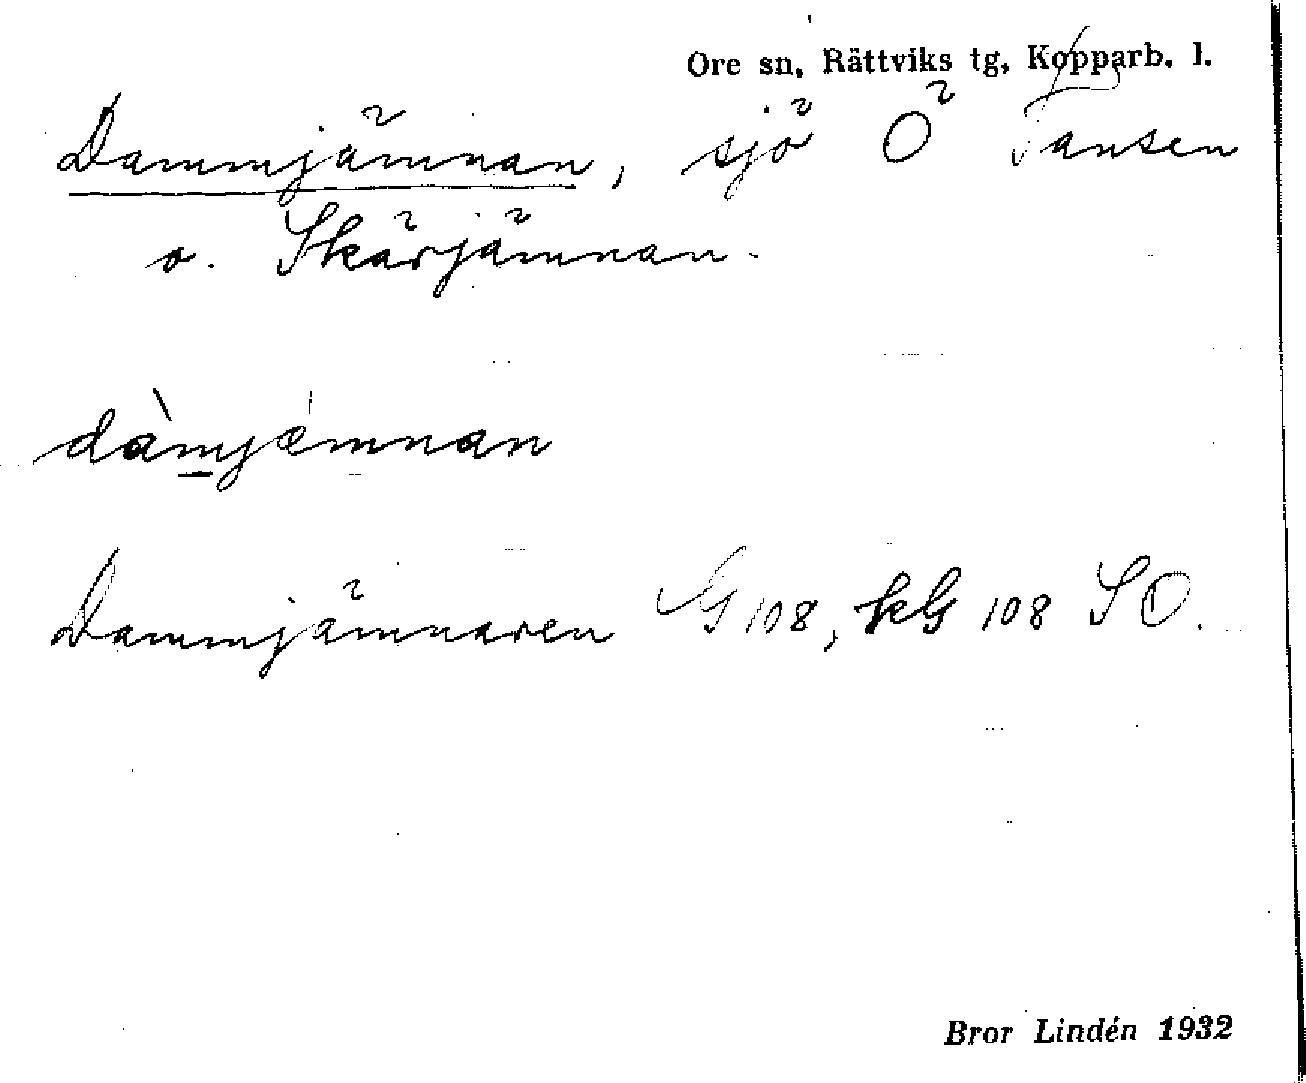 Ore sn, Rättviks tg, Kopparb. l.
Dammjämnan, sjö Ö Tansen
o. Skärjämnan.
dàmjämnan
Dammjämnaren G 108, kG 108 SO.
Bror Lindén 1932